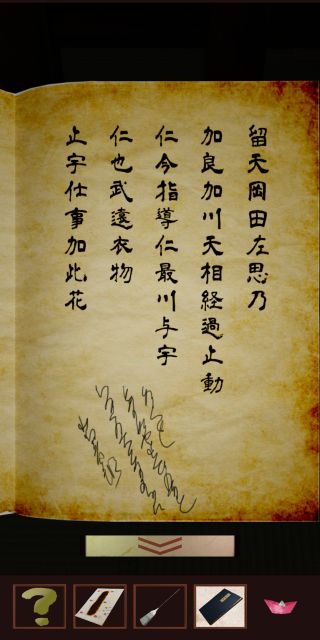 留天岡田左思乃
加良加川天相経過止動
仁今指導仁最川与宇
仁也武遠衣物
止宇仕事加此花